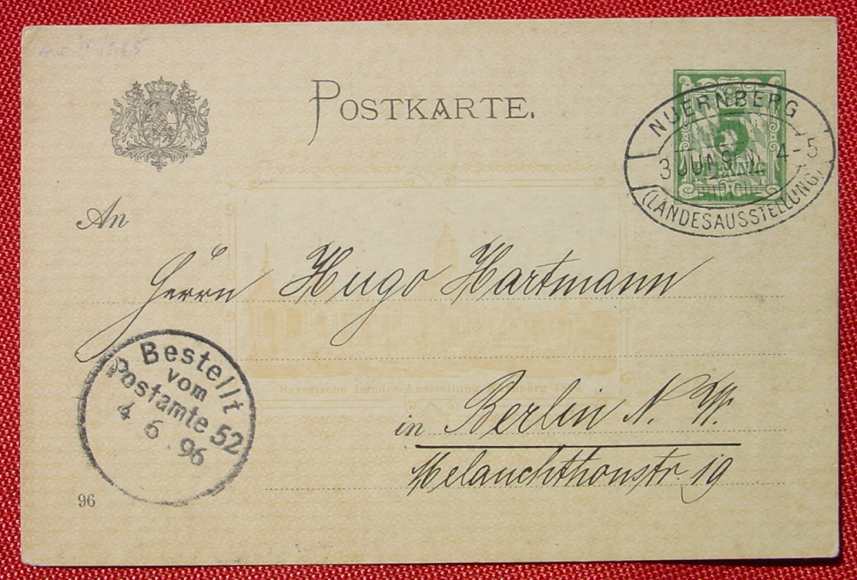 POSTKARTE.
NUERNBERG
3 JUN 4-5
(LANDESAUSSTELLUNG)
5
An
Herrn Hugo Hartmann
Bestellt
vom
Postamte 52
4 6. 96
in Berlin N. W.
Melanchthonstr. 19
96